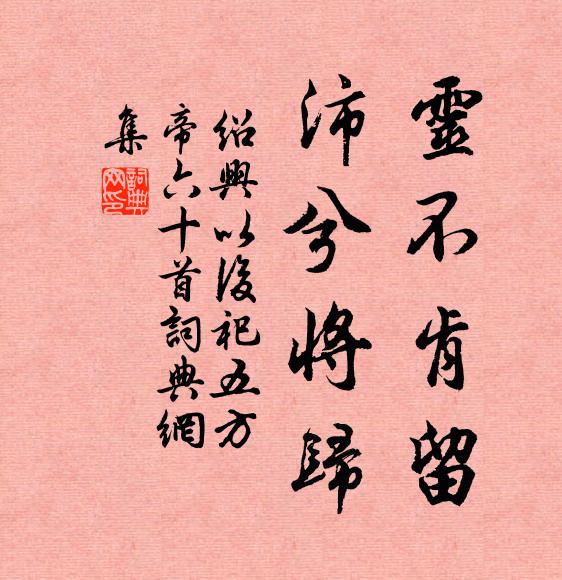 靈不肯留
沛兮將歸
紹興以後祀五方
帝六十首詞典網
集
詞典
网印